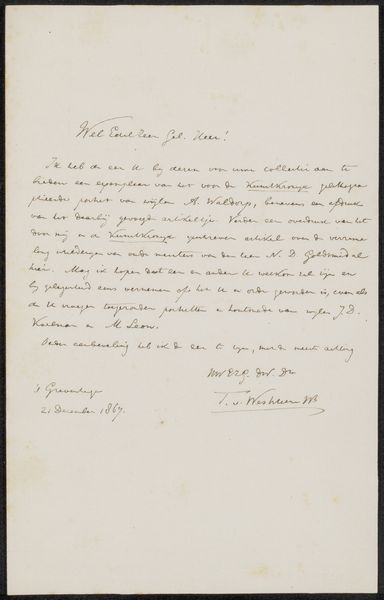 Wel Edel Zeer Gel. Heer!
Ik heb de eer U bij dezen voor uwe collectie aan te
bieden een exemplaar van het voor de Kunstkronijk
portret van wijlen A. Waldorp, benevens een afdruk
van het daarbij gevoegd artikeltje. Verder een overdruk van het
door mij in de Kunstkronijk geschreven artikel over de verzame
ling van oude meesters van den heer N. D. Goldsmid al
hier. Mag ik hopen dat een en ander U welkom zal zijn en
bij gelegenheid eens vernemen of het U in orde geworden is, even als
de U vroeger toegezonden portretten in houtsnede van wijlen J.D.
Koelman en M Leon.
Onder aanbeveling heb ik de eer te zijn, met de meeste achting
UwEZG. dw. Dr
T. v. Westrheene Wz
's Gravenhage
21 December 1867.